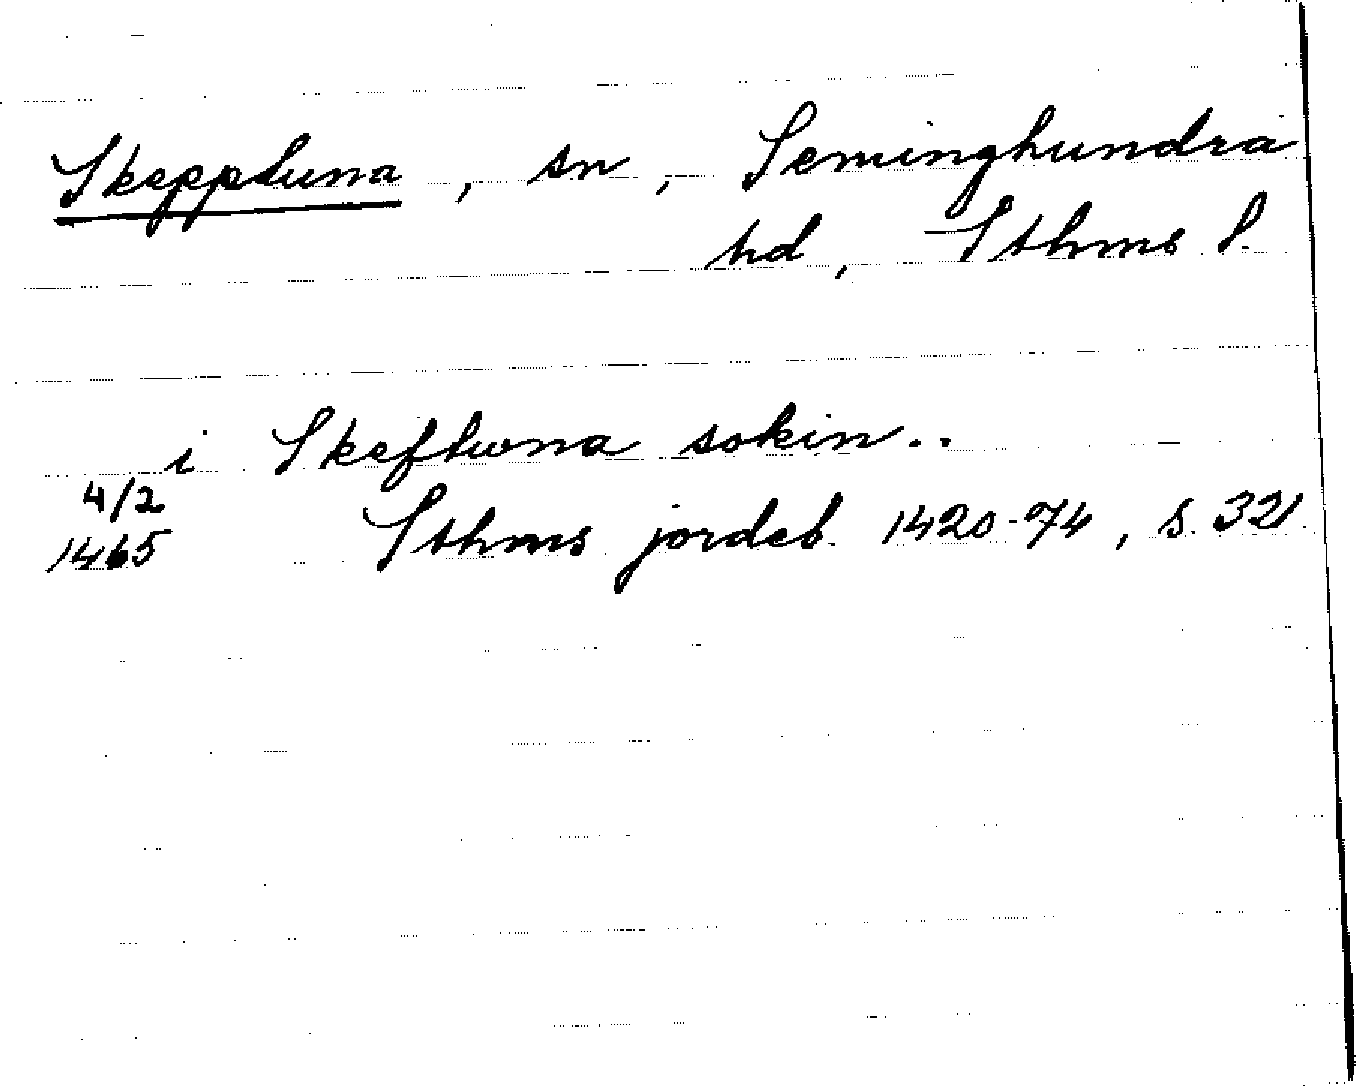 Skepptuna, sn, Seminghundra
hd, Sthms l.
i Skeftwna sokin..
4/2
1465 Sthms jordeb. 1420-74, s. 321